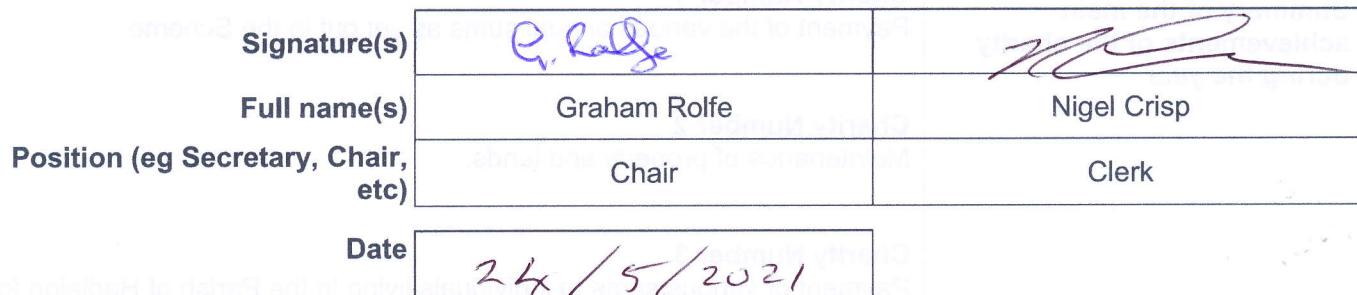 Signature(s) G. Rolfe
Full name(s) Graham Rolfe Nigel Crisp
Position (eg Secretary, Chair, etc) Chair Clerk
Date 24/5/2021